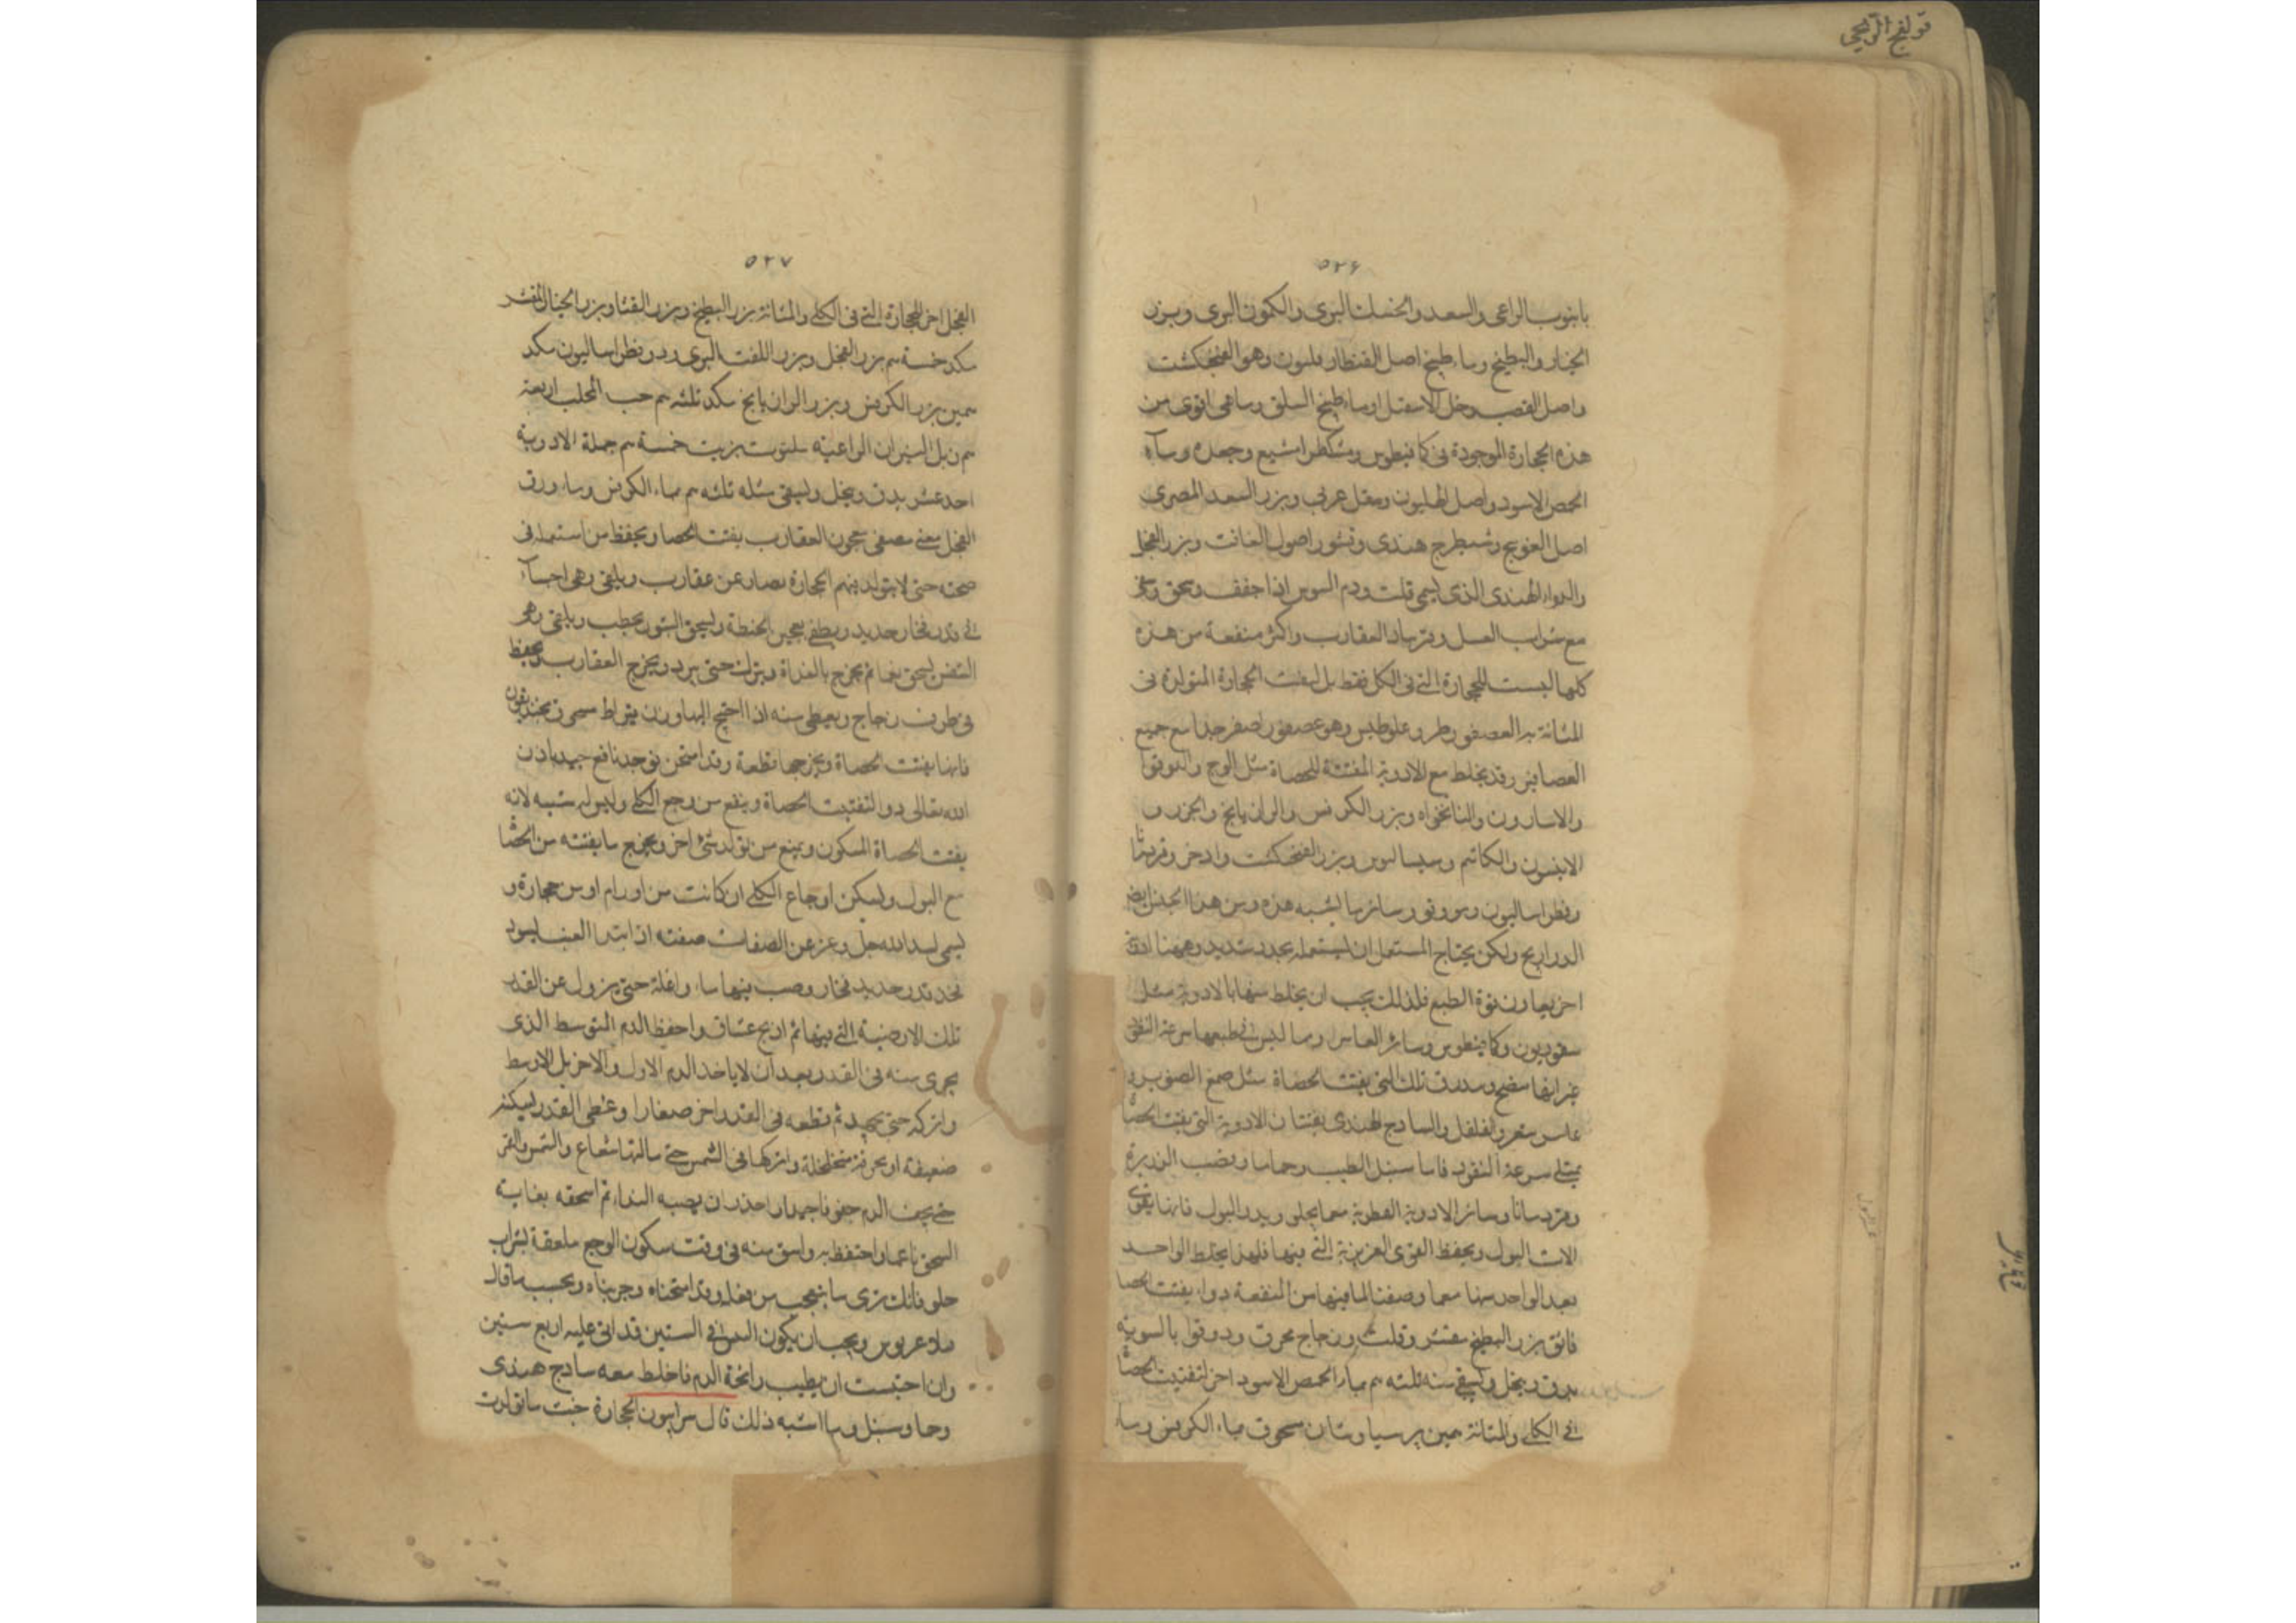 قولنج الريحي
٥٢٦
بابنوب الراعي والسعد والخسك البري والكمون البري وبزر
الخيار والبطيخ وماء طبيخ اصل القنطار يلسون وهو الفنجنكشت
واصل القصب وخل الاسقيل او ماء طبيخ السلق وما هي اقوى من
هذه الحجارة الموجودة في كمافيطوس ومشكطرامشيع وجعده وماء
الحمص الاسود واصل الهليون ومقل عربي وبزر السعد المصري
اصل العوسج وشيطرج هندي وقشور اصول الغافت وبزر الفجل
والدواء الهندي الذي يسمى قلت ودم التيوس اذا جفف وسحق
مع شراب العسل وقد رماد العقارب واكثر منفعة من هذه
كلها ليست للحجارة التي في الكلى فقط بل لتفتت الحجارة المتولدة في
المثانة وهو عصفور اصفر جدا مع جميع
العصافير وقد يخلط مع الادوية المفتتة للحصاة مثل الوج والدوقوا
والاسارون والنانخواه وبزر الكرفس والرازيانج والجزر و
الانيسون والكاشم وسيساليوس وبزر الفنجنكشت واذخر وقردمانا
وفطراساليون ومو وفو وسائر ما يشبه هذه ومن هذا الجنس ايضا
الذراريح ولكن يحتاج المستعمل ان يستعمله بحذر شديد وههنا ادوية
اخر يعاون قوة الطبع فلذلك يجب ان يخلط منها بالادوية مثل
سقورديون وكمافيطوس وسائر وما ليس في طبعها سرعة النفوذ
غير انها تنضج ويندرق تلك التي يفتت الحصاة مثل صمغ الصنوبر و
والفلفل والساذج الهندي يفتتان الادوية التي يفتت الحصا
سرعة النفوذ فاما سنبل الطيب وحماما وقصب الذريرة
وقردمانا وسائر الادوية العطرية مما يجلو ويدر البول فانها يقوي
الات البول ويحفظ القوى الغريزية التي فيها فلهذا يخلط الواحد
بعد الواحد منها مما وصفنا لما فيها من المنفعة دواء يفتت الحصا
فائق بزر البطيخ مقشر وقلت وزجاج محرق ودوقوا بالسوية
يدق وينخل ويسقى منه ثلثه م بماء الحمص الاسود اخر لتفتيت الحصا
في الكلى والمثانة حين برسياوشان مسحوق بماء الكرفس وماء
٥٢٧
الفجل اخر للحجارة التي في الكلى والمثانة بزر البطيخ وبزر القثا وبزر الخيار المقشر
مكد خمسة م بزر الفجل وبزر اللفت البري ودو فطراساليون مكد
سمين بزر الكرفس وبزر الرازيانج مكد ثلثه م حب المحلب اربعة
م زبل الثيران الراعية ملتوت بزيت خمسة م جملة الادوية
احد عشر يدق وينخل ويسقى مثله ثلثه م بماء الكرفس وماء ورق
الفجل مغلى مصفى معجون العقارب يفتت الحصا ويحفظ من استعمله في
صحته حتى لا يتولد فيهم الحجارة يصار عن عقارب ويلقى وهي احياء
في قدر فخار جديد ويطين بعجين الحنطة ويسجر التنور بحطب ويلقى وهو
ثم يخرج بالغداة ويترك حتى يبرد ويخرج العقارب ويحفظ
في ظرف زجاج ويعطى منه اذا احتيج اليها وزن قيراط
فانها يفتت الحصاة ويخرجها قطعة وقد امتحن فوجد نافع جيد باذن
الله تعالى دوا لتفتيت الحصاة وينفع من وجع الكلى وليس له شبيه لانه
يفتت الحصاة المتكون ويمنع من تولد شئ اخر ويخرج ما يفتته من الحصا
مع البول ويسكن اوجاع الكلى ان كانت من اورام او من حجارة و
يسمى يد الله جل وعز عن الصفات صفته اذا ابتدا العنب يسود
فخذ قدر جديد فخار وصب فيها ماء واغله حتى يزول عن القدر
تلك الارضية التي فيها ثم اذبح عتاق واحفظ الدم المتوسط الذي
يجري منه في القدر بعد ان لا ياخذ الدم الاول والاخر بل الاوسط
واتركه حتى يجمد ثم قطعه في القدر اخر صغارا وغطى القدر
ضعيفة او بخرقة متخلخلة واتركها في الشمس حتى ينالها شعاع والشمس والقمر
حتى يجف الدم جفوفا جيدا واحذر ان يصيبه الندا ثم اسحقه بغاية
السحق ناعما واحتفظ به واسق منه في وقت سكون الوجع ملعقة بشراب
حلو فانك ترى ما يتعجب من فعله وقد امتحناه وجربناه وبحسب ما قال
ويجب ان يكون التيس في السنين قد اتى عليه اربع سنين
وان احببت ان يطيب رائحة الدم فاخلط معه ساذج هندي
وحما وسنبل وما اشبه ذلك قال سرابيون الحجارة